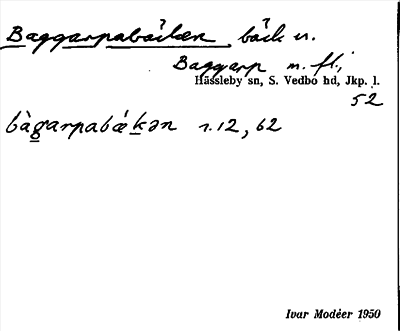 Baggarpabäcken, bäck n.
Baggarp m. fl.,
Hässleby sn, S. Vedbo hd, Jkp. l.
52
bàgarpabǽkən r.12, 62
Ivar Modéer 1950